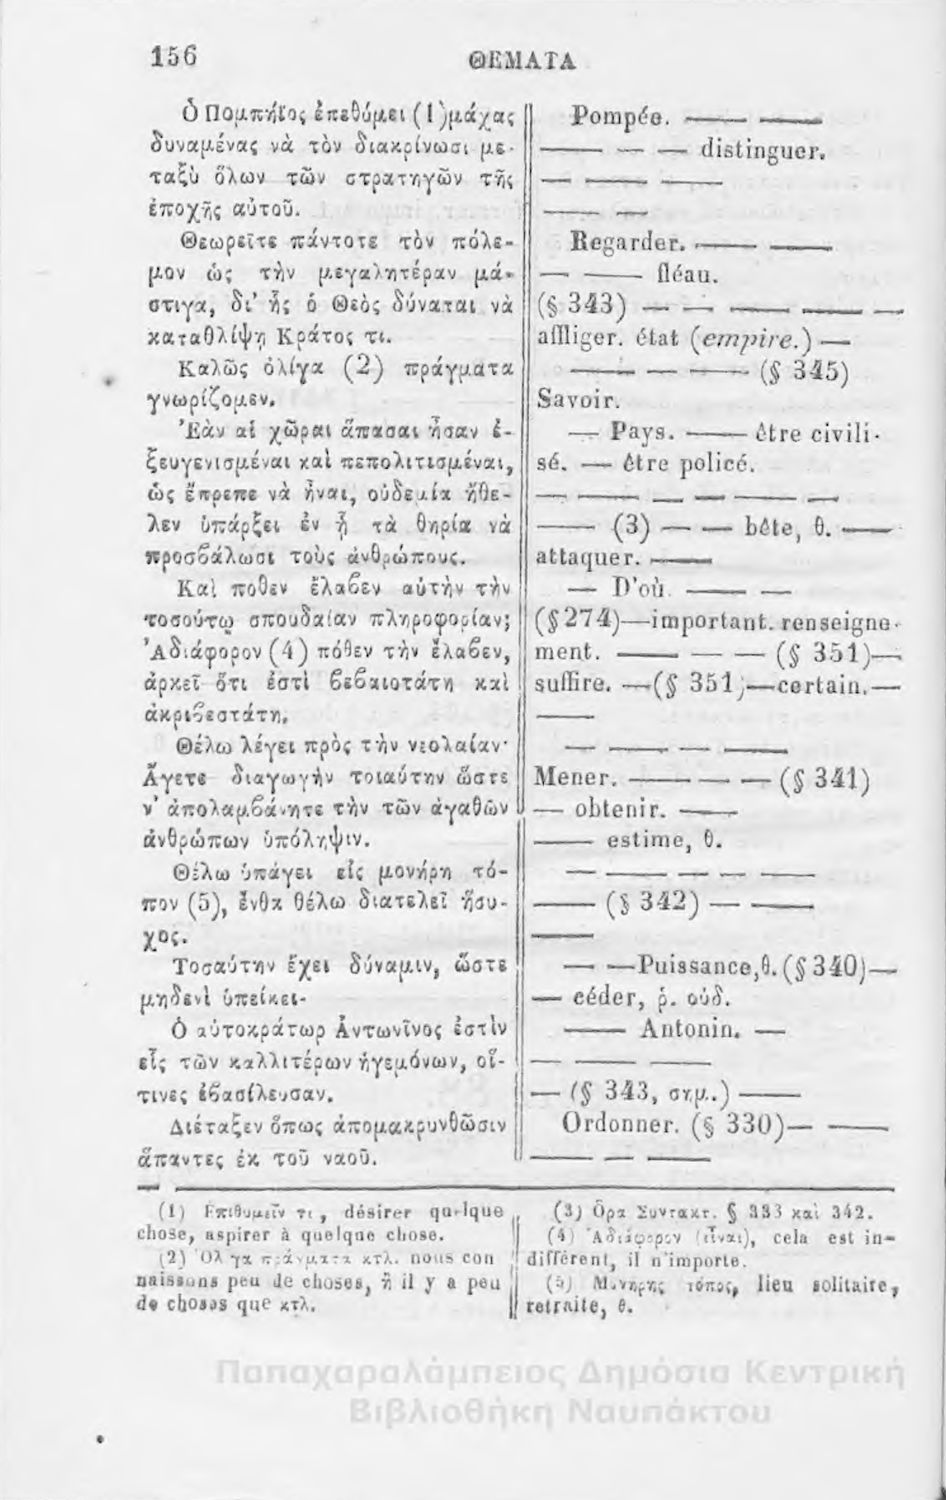 156
ΘΕΜΑΤΑ
Ὁ Πομπήϊος ἐπεθύμει (1) μάχας
δυναμένας νὰ τὸν διακρίνωσι με-
ταξὺ ὅλων τῶν στρατηγῶν τῆς
ἐποχῆς αὐτοῦ.
Θεωρεῖτε πάντοτε τὸν πόλε-
μον ὡς τὴν μεγαλητέραν μά-
στιγα, δι' ἧς ὁ Θεὸς δύναται νὰ
καταθλίψῃ Κράτος τι.
Καλῶς ὀλίγα (2) πράγματα
γνωρίζομεν.
Ἐὰν αἱ χῶραι ἅπασαι ἦσαν ἐ-
ξευγενισμέναι καὶ πεπολιτισμέναι,
ὡς ἔπρεπε νὰ ἦναι, οὐδεμία ἤθε-
λεν ὑπάρξει ἐν ᾗ τὰ θηρία νὰ
προσϐάλωσι τοὺς ἀνθρώπους.
Καὶ ποθεν ἔλαϐεν αὐτὴν τὴν
τοσούτῳ σπουδαίαν πληροφορίαν;
Ἀδιάφορον (4) πόθεν τὴν ἔλαϐεν,
ἀρκεῖ ὅτι ἐστὶ ϐεϐαιοτάτη καὶ
ἀκριϐεστάτη.
Θέλω λέγει πρὸς τὴν νεολαίαν·
Ἄγετε διαγωγὴν τοιαύτην ὥστε
ν' ἀπολαμϐάνητε τὴν τῶν ἀγαθῶν
ἀνθρώπων ὑπόληψιν.
Θέλω ὑπάγει εἰς μονήρη τό-
πον (5), ἔνθα θέλω διατελεῖ ἥσυ-
χος.
Τοσαύτην ἔχει δύναμιν, ὥστε
μηδενὶ ὑπείκει·
Ὁ αὐτοκράτωρ Ἀντωνῖνος ἐστὶν
εἷς τῶν καλλιτέρων ἡγεμόνων, οἵ-
τινες ἐϐασίλευσαν.
Διέταξεν ὅπως ἀπομακρυνθῶσιν
ἅπαντες ἐκ τοῦ ναοῦ.
Pompée. —— ——
—— — — distinguer.
— —— ——
—— — ——
Regarder. —— ——
— —— fléau.
(§ 343) — — —— —— —
affliger. état (empire.) —
—— — —— (§ 345)
Savoir.
— Pays. —— être civili-
sé. — être policé.
— —— — — —— —
—— (3) — — bête, θ. ——
attaquer. ——
— D'où —— —
(§ 274)—important. renseigne-
ment. —— — — (§ 351)—
suffire. —(§ 351)—certain.—
——
— —— — ——
Mener. —— — — (§ 341)
— obtenir. ——
—— estime, θ.
— —— — — ——
—— (§ 342) — ——
——
— —Puissance,θ.(§ 340)—
— céder, ῥ. οὐδ.
—— Antonin. —
— —— ——
— (§ 343, σημ.) ——
Ordonner. (§ 330)— ——
—— — ——
(1) Ἐπιθυμεῖν τι, désirer quelque
chose, aspirer à quelque chose.
(2) Ὀλίγα πράγματα κτλ. nous con
naissons peu de choses, ἢ il y a peu
de choses que κτλ.
(3) Ὅρα Συντακτ. § 333 καὶ 342.
(4) Ἀδιάφορον (εἶναι), cela est in-
différent, il n'importe.
(5) Μονήρης τόπος, lieu solitaire,
retraite, θ.
Παπαχαραλάμπειος Δημόσια Κεντρική
Βιβλιοθήκη Ναυπάκτου